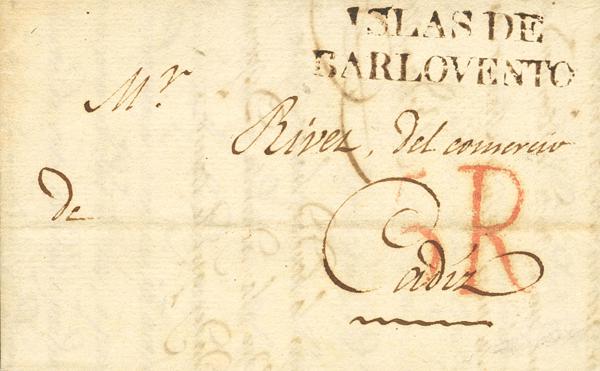 ISLAS DE
BARLOVENTO
Mr.
Rivez, del comercio
de
5R
Cadiz